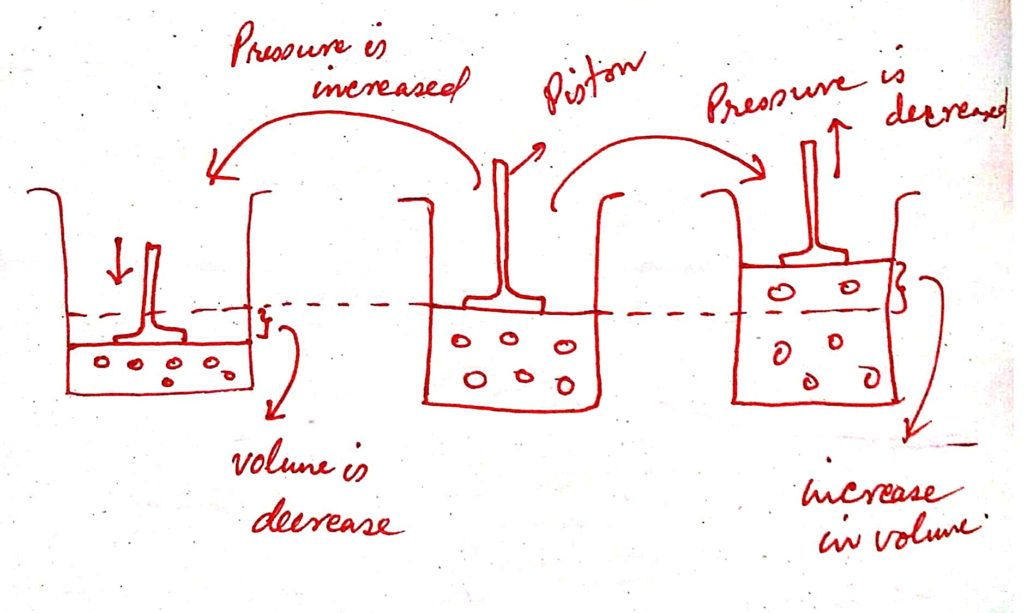 Pressure is
increased
Piston
Pressure is
decreased
volume is
decrease
increase
in volume